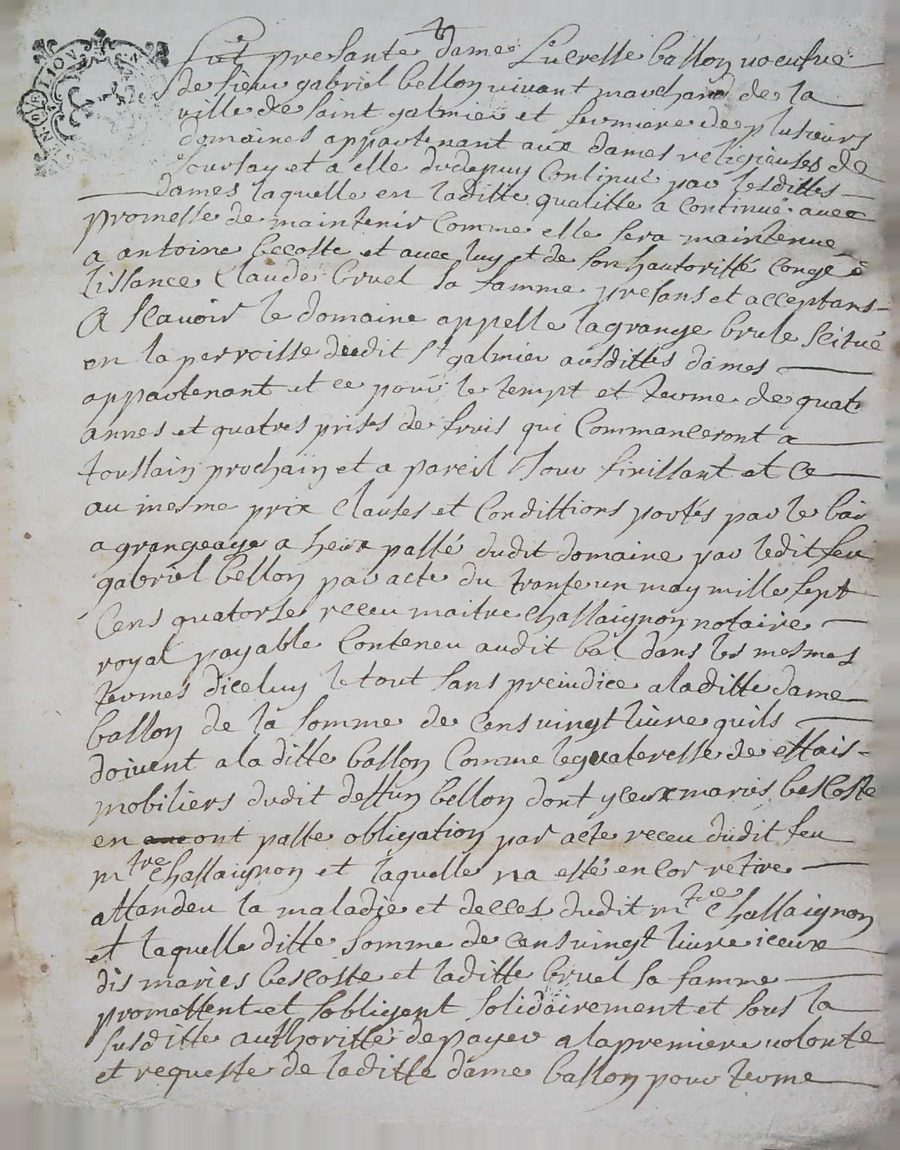 Fut presante dame Lucresse ballon voeufve
de sieur gabriel bellon vivant marchand de la
ville de saint galmier et fermiere de plusieurs
domaines appartenant aux dames religieuses de
Joursay et a elle du depuy continué par lesdittes
dames laquelle en laditte qualitte a continué avec
promesse de maintenir comme elle sera maintenue
a antoine bescoste et avec luy et de son hautoritté congé é
lissance Claude bruel sa famme presans et acceptans
A scavoir le domaine appelle la grange brule scitué
en la perroisse dudit st galmier ausdittes dames
appartenant et ce pour le tempt et terme de quatr
annes et quatres prises de fruis qui Commanceront a
toussain prochain et a pareil Jour finissant et ce
au mesme prix clauses et condittions portés par le bai
a grangeage a heux passé dudit domaine par ledit feu
gabriel bellon par acte du trante un may mille sept
Cens quatorse receu maitre chassaignon notaire
royal payable Conteneu audit bal dans les mesmes
termes diceluy le tout sans preiudice a laditte dame
ballon de la somme de cens vingt livre quils
doivent a la ditte ballon Comme de effais
mobiliers dudit deffun bellon dont yceux mariés bescoste
en ont passe obligation par acte receu dudit feu
mtre chassaignon et laquelle na esté encor retire
attandeu la maladie et decces dudit mtre chassaignon
et laquelle ditte somme de cens vingt livre iceux
dis mariés bescoste et laditte bruel sa famme
promettent et sobligent solidairement et sous la
susditte authoritté de payer a la premiere volonte
et requeste de laditte dame ballon pour terme